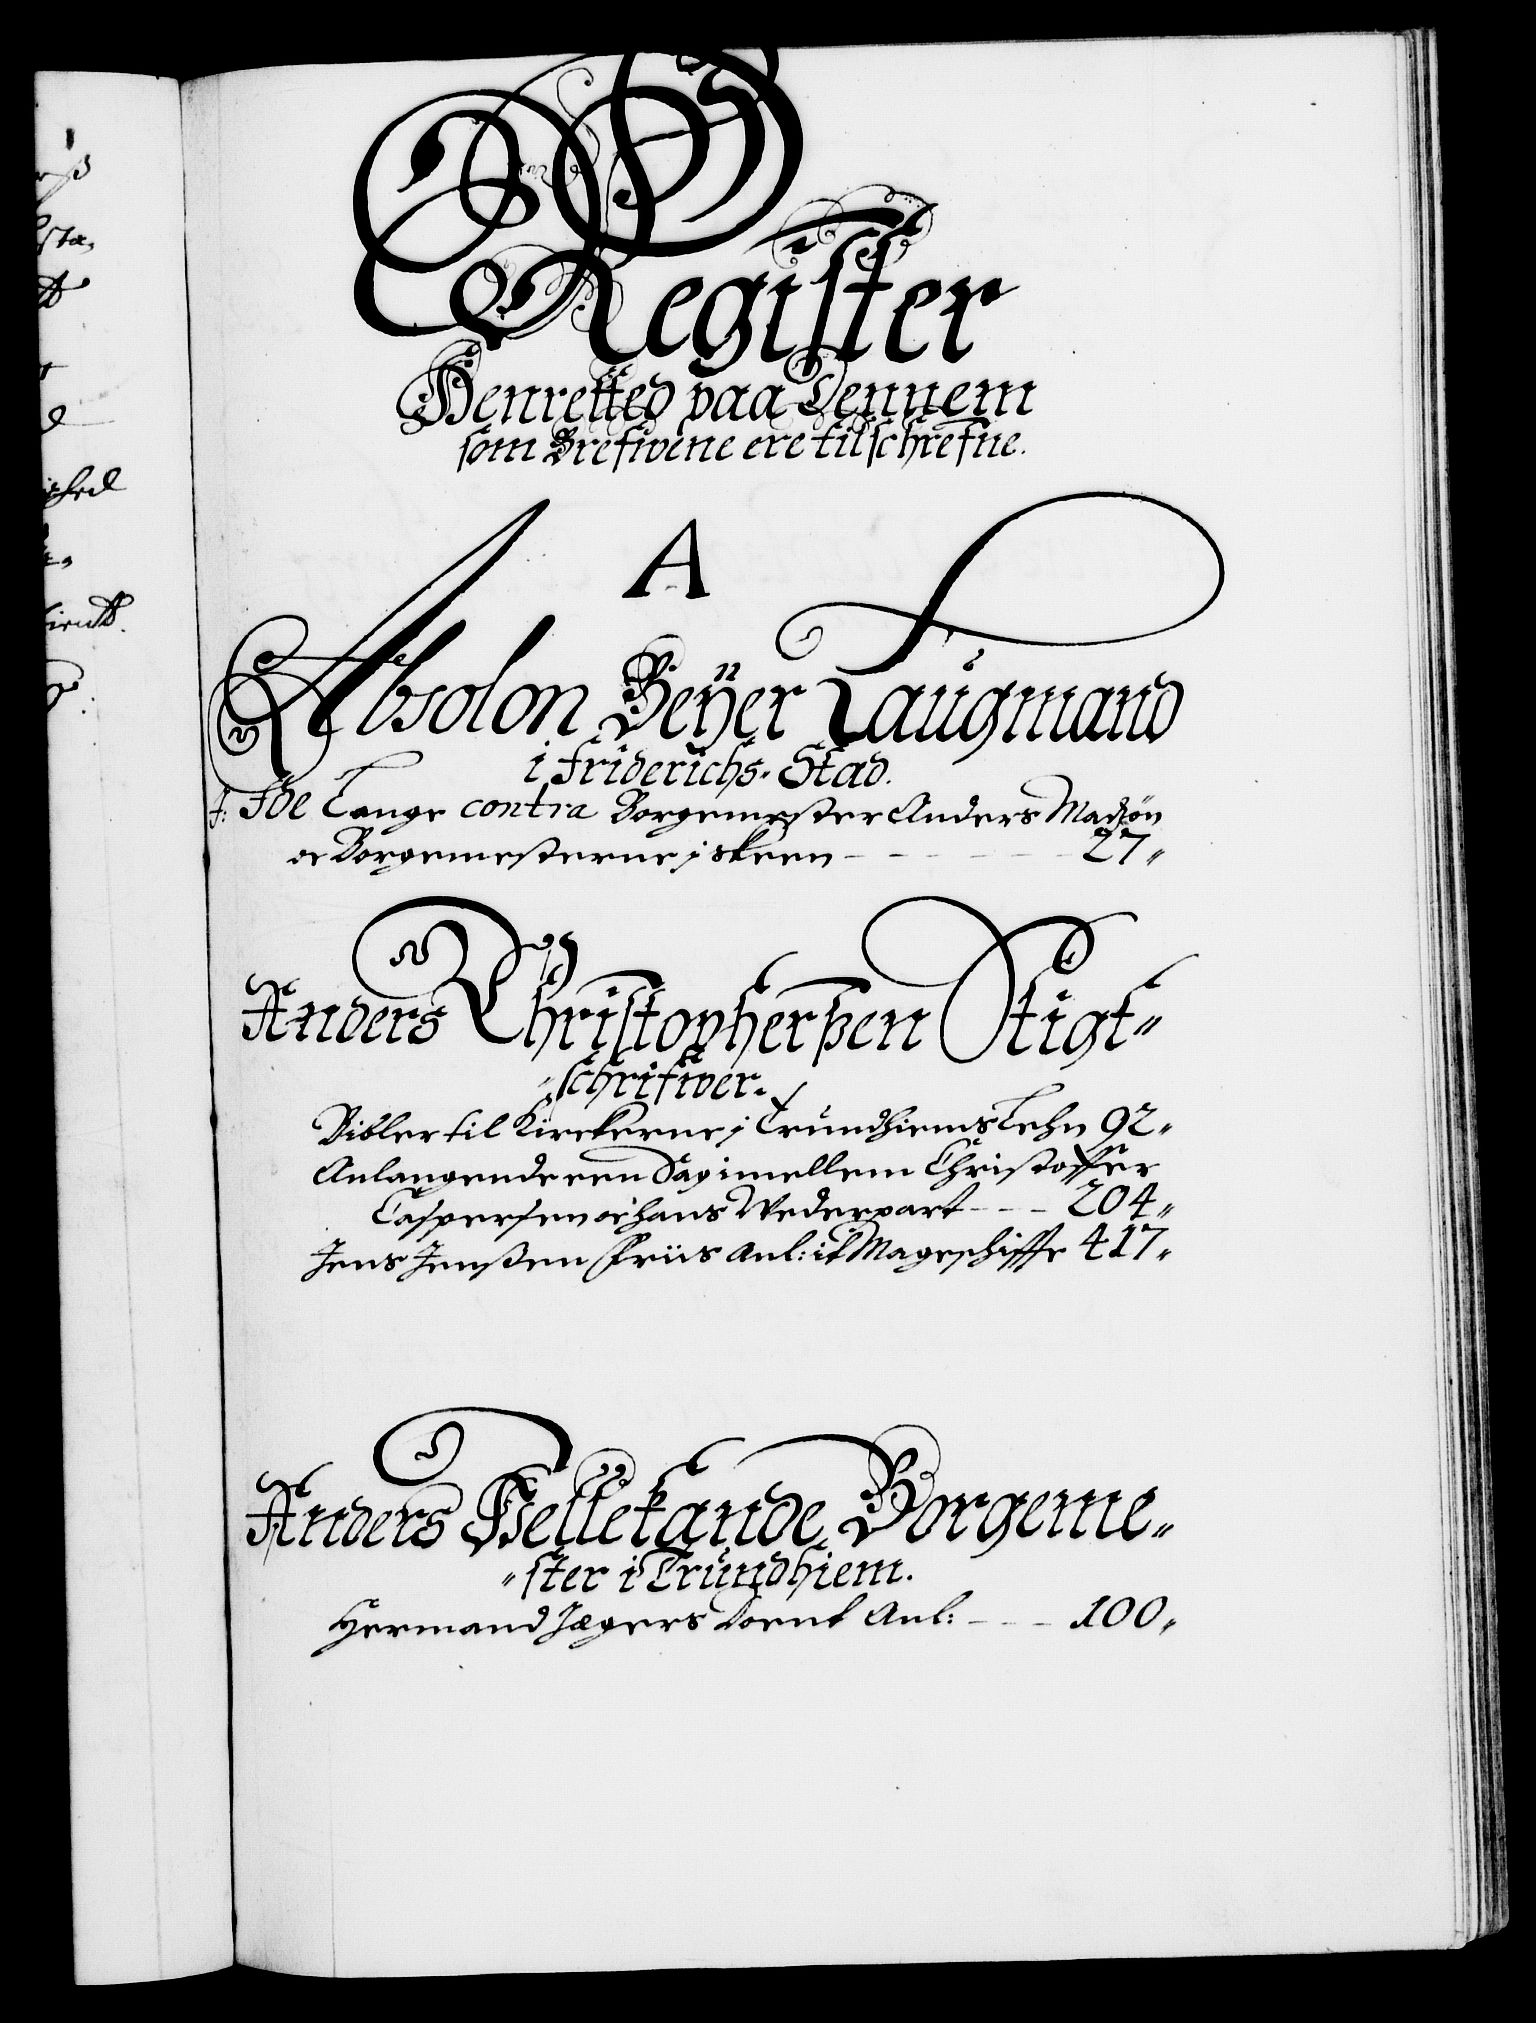 Register
Henretted paa Dennem
som Brefwene ere tilschrefne.
A
Absolon Beÿer Laugmand
i Friderichs-Stad.
J: Ide Lange contra Borgemester Anders Madsøn
oc Borgemesterne i Skeen - - - - - 27"
Anders Christopherßen Stigt"
"schrifwer.
Bibler til Kirckerne i Trundhiems Lehn 92"
Anlangende een Sag imellem Christoffer
Caspersen oc hans Wederpart - - - 204"
Jens Jenßen Friis Anl: it Mageschiffte 417"
Anders Hellekande Borgeme"
"ster i Trundhiem.
Hermand Jægers Anl: - - - 100"